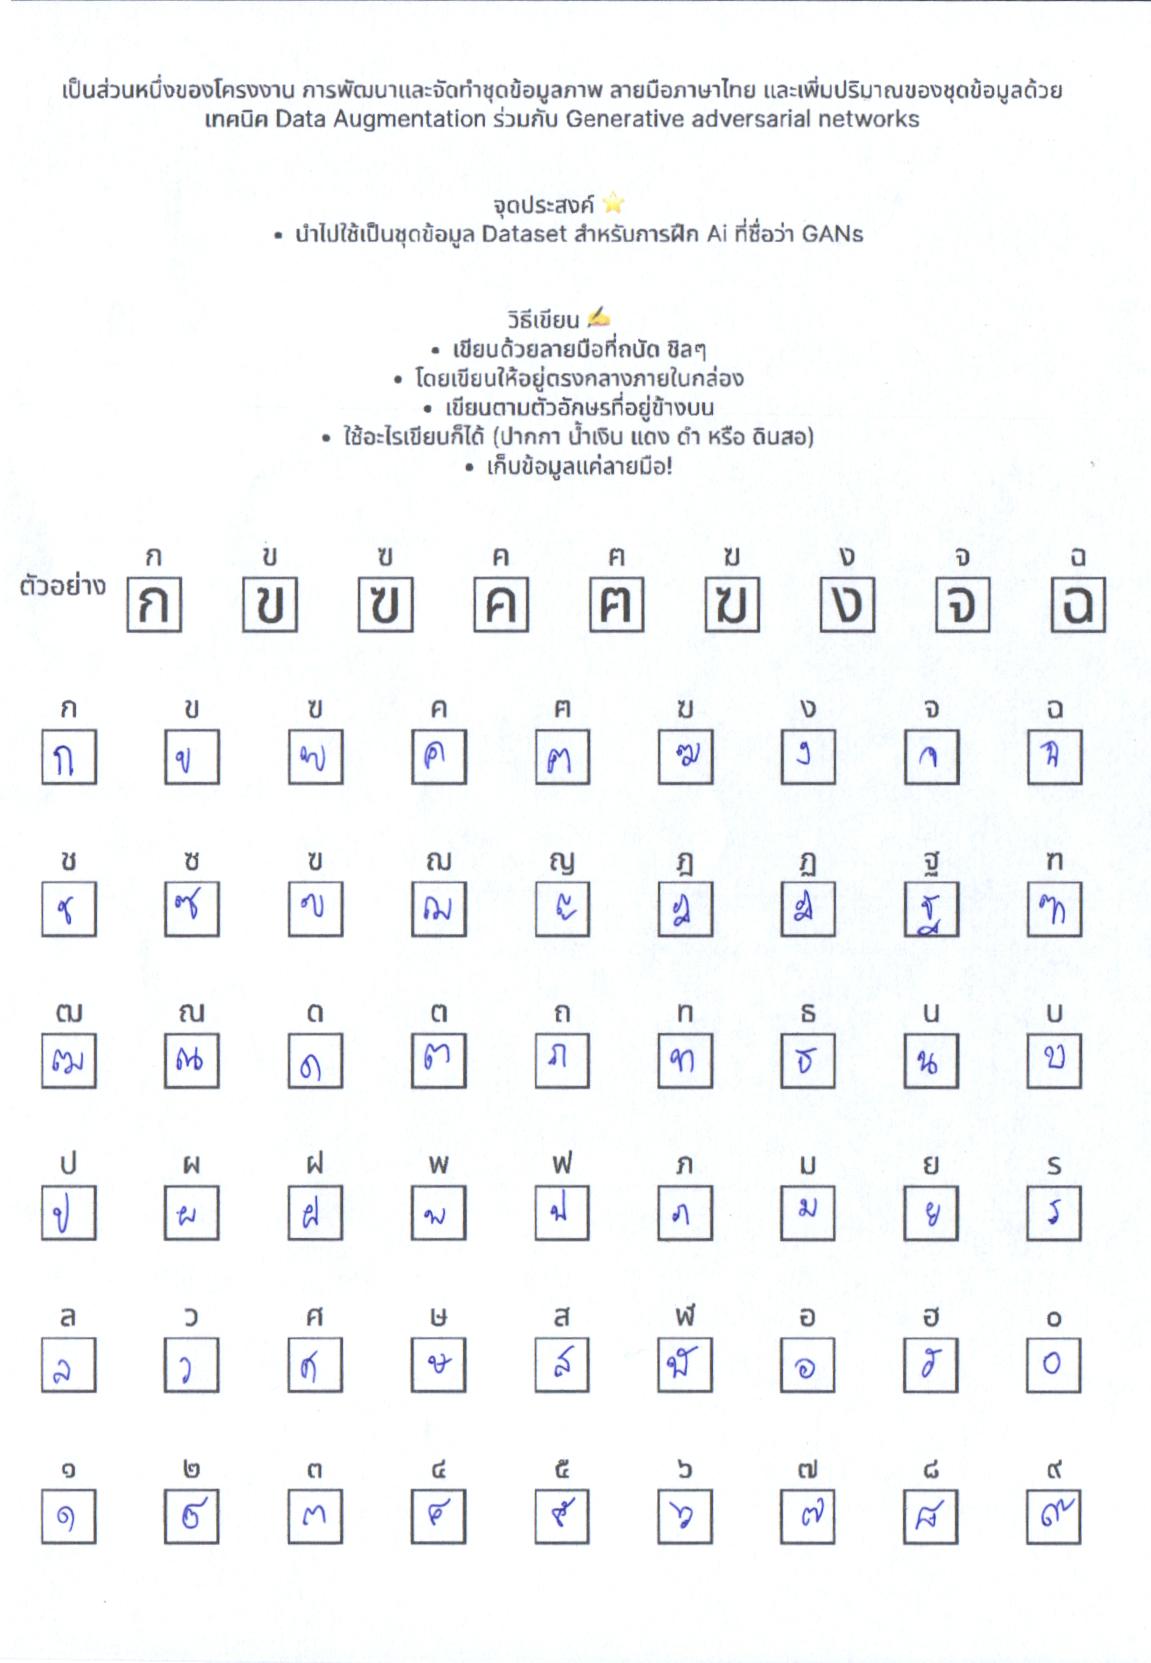 เป็นส่วนหนึ่งของโครงงาน การพัฒนาและจัดทำชุดข้อมูลภาพ ลายมือภาษาไทย และเพิ่มปริมาณของชุดข้อมูลด้วย
เทคนิค Data Augmentation ร่วมกับ Generative adversarial networks
จุดประสงค์ ⭐
• นำไปใช้เป็นชุดข้อมูล Dataset สำหรับการฝึก Ai ที่ชื่อว่า GANs
วิธีเขียน ✍
• เขียนด้วยลายมือที่ถนัด ชิลๆ
• โดยเขียนให้อยู่ตรงกลางภายในกล่อง
• เขียนตามตัวอักษรที่อยู่ข้างบน
• ใช้อะไรเขียนก็ได้ (ปากกา น้ำเงิน แดง ดำ หรือ ดินสอ)
• เก็บข้อมูลแค่ลายมือ!
ก ข ฃ ค ฅ ฆ ง จ ฉ
ตัวอย่าง ก ข ฃ ค ฅ ฆ ง จ ฉ
ก ข ฃ ค ฅ ฆ ง จ ฉ
ก ข ฃ ค ฅ ฆ ง จ ฉ
ช ซ ฃ ฌ ญ ฎ ฏ ฐ ฑ
ช ซ ฃ ฌ ฎ ฏ ฐ ฑ
ฒ ณ ด ต ถ ท ธ น บ
ฒ ณ ด ต ถ ท ธ น บ
ป ผ ฝ พ ฟ ภ ม ย ร
ป ผ ฝ พ ฟ ภ ม ย ร
ล ว ศ ษ ส ฬ อ ฮ ๐
ล ว ศ ษ ส ฬ อ ฮ ๐
๑ ๒ ๓ ๔ ๕ ๖ ๗ ๘ ๙
๑ ๒ ๓ ๔ ๕ ๖ ๗ ๘ ๙